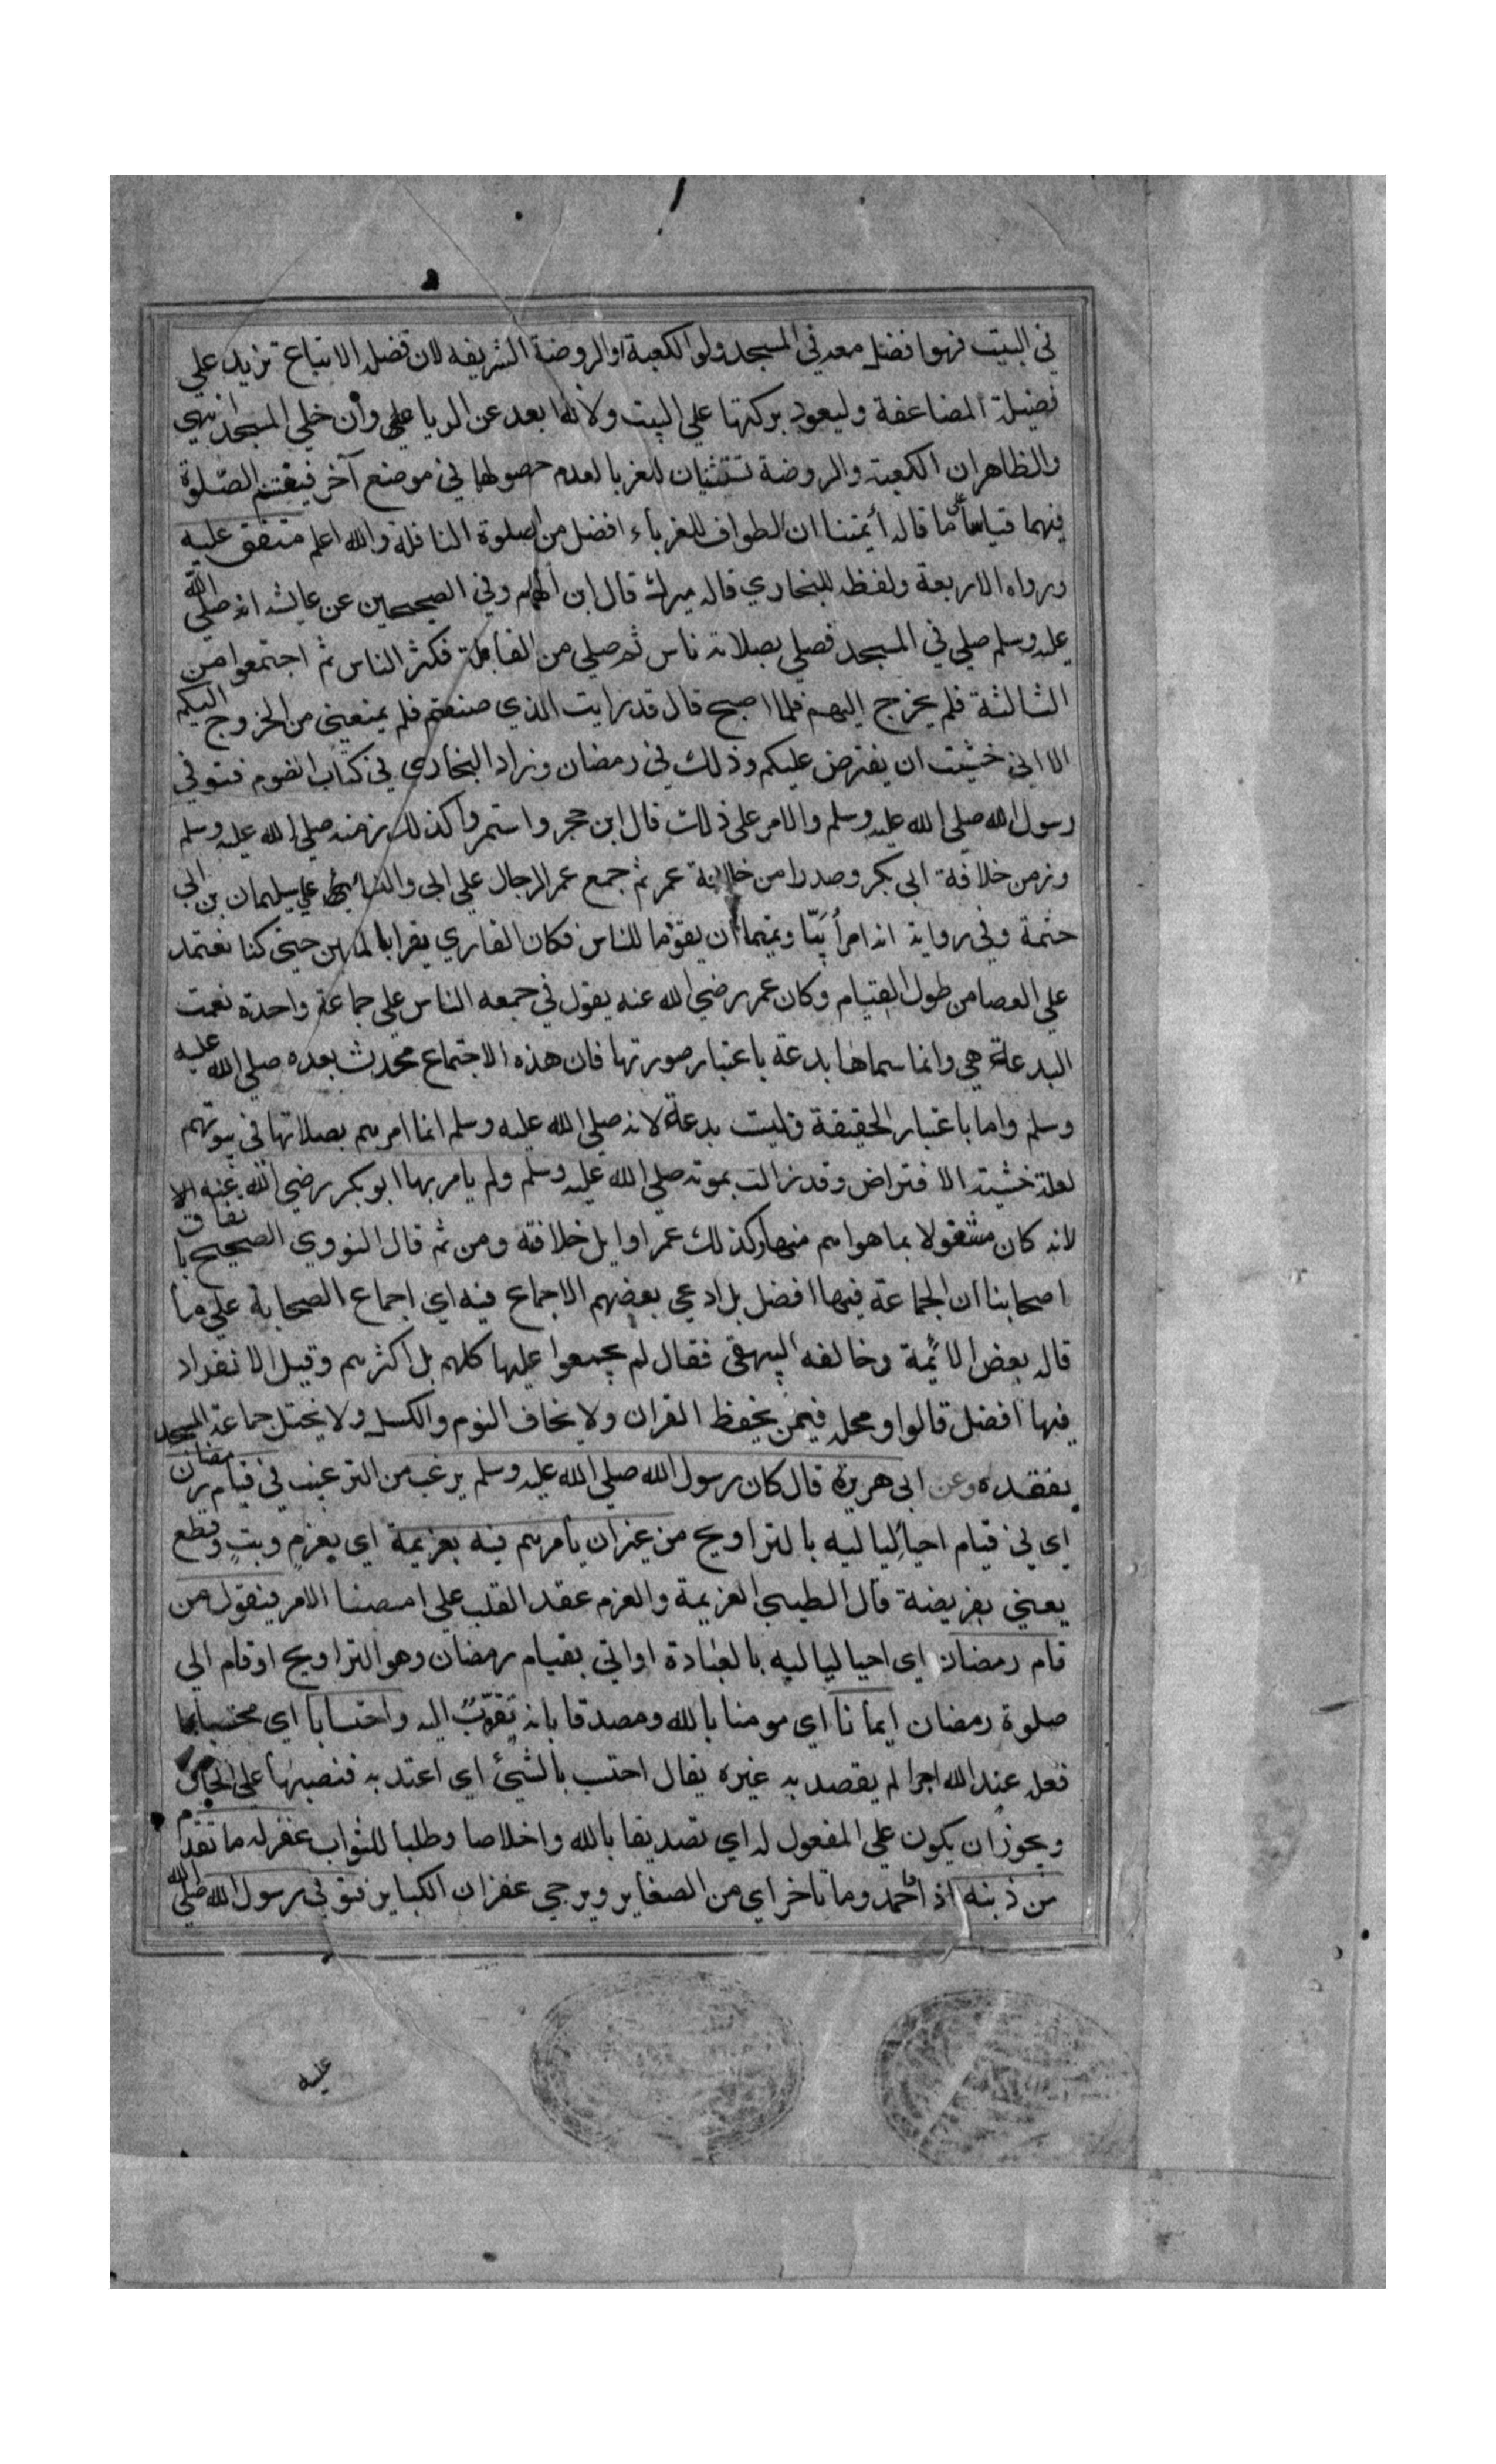 في البيت فهوا فضل معه في المسجد ولو الكعبة او الروضة الشريفه لان فضل الاتباع تزيد علي
فضيلة المضاعفة وليعود بركتها علي البيت ولانه ابعد عن الريا علي وان خلي المسجد انتهي
والظاهران الكعبة والروضة تستثنيان للغربا لعدم حصولها في موضع آخر فيغتنم الصلوة
فيهما قياسا علي ما قاله أيمتنا ان الطواف للغرباء افضل من الصلوة النافلة والله اعلم متفق عليه
ورواه الاربعة ولفظه للبخاري قاله ميرك قال ابن الهمام وفي الصحيحين عن عايشه انه صلي الله
عليه وسلم صلي في المسجد فصلي بصلاته ناس ثم صلي من القابلة فكثر الناس ثم اجتمعوا من
الثالثة فلم يخرج إليهم فلما اصبح قال قد رايت الذي صنعتم فلم يمنعيني من الخروج اليكم
الا اني خشيت ان يفترض عليكم وذلك في رمضان وزاد البخاري في كتاب الصوم فتوفي
رسول الله صلي الله عليه وسلم والامر علي ذلك قال ابن حجر واستمروا كذلك زمنه صلي الله عليه وسلم
وزمن خلافة ابي بكر وصدرا من خلافة عمر ثم جمع عمر الرجال علي ابي والنسا علي سليمان بن ابي
حتمة وفي رواية انه امر أبيّا وتميما أن يقوما للناس فكان القاري يقرا بالمايين حتي كنا نعتمد
علي العصا من طول القيام وكان عمر رضي الله عنه يقول في جمعه الناس علي جماعة واحدة نعمت
البدعة هي وانما سماها بدعة باعتبار صورتها فان هذه الاجتماع محدث بعده صلي الله عليه
وسلم واما باعتبار الحقيقة فليت بدعة لانه صلي الله عليه وسلم انما امرهم بصلاتها في بيوتهم
لعلة خشية الافتراض وقد زالت بموته صلي الله عليه وسلم ولم يامر بها ابو بكر رضي الله عنه الا
لانه كان مشغولا بما هو اهم منها وكذلك عمر اوايل خلافته ومن ثم قال النووي الصحيح باتفاق
اصحابنا ان الجماعة فيها افضل بل ادعي بعضهم الاجماع فيه اي اجماع الصحابة علي ما
قاله بعض الائمة وخالفه البيهقي فقال لم يجمعوا عليها كلهم بل اكثرهم وقيل الانفراد
فيها افضل قالوا ومحله فيمن يحفظ القران ولا يخاف النوم والكسل ولا يختل جماعة المسجد
بفقده وعن ابي هريرة قال كان رسول الله صلي الله عليه وسلم يرغب من الترغيب في قيام رمضان
اي في قيام احيا لياليه بالتراويح من غير ان يأمرهم فيه بعزيمة اي بعزم وبتٍ وقطع
يعني بفريضة قال الطيبي العزيمة والعزم عقد القلب علي امضا الامر فيقول من
قام رمضان اي احيا لياليه بالعبادة او اتي بقيام رمضان وهو التراويح او قام الي
صلوة رمضان ايمانا اي مومنا بالله ومصدقا بانه تقرّب اليه واحتسابا اي محتسبا بما
فعل عند الله اجرا لم يقصد به غيره يقال احتسب بالشيئ اي اعتد به فنصبها علي الحال
ويجوز ان يكون علي المفعول له اي تصديقا بالله واخلاصا وطلبا للثواب غفر له ما تقدم
من ذنبه زاد احمد وما تاخر اي من الصغاير ويرجي غفران الكباير فتوفي رسول الله صلي الله
عليه